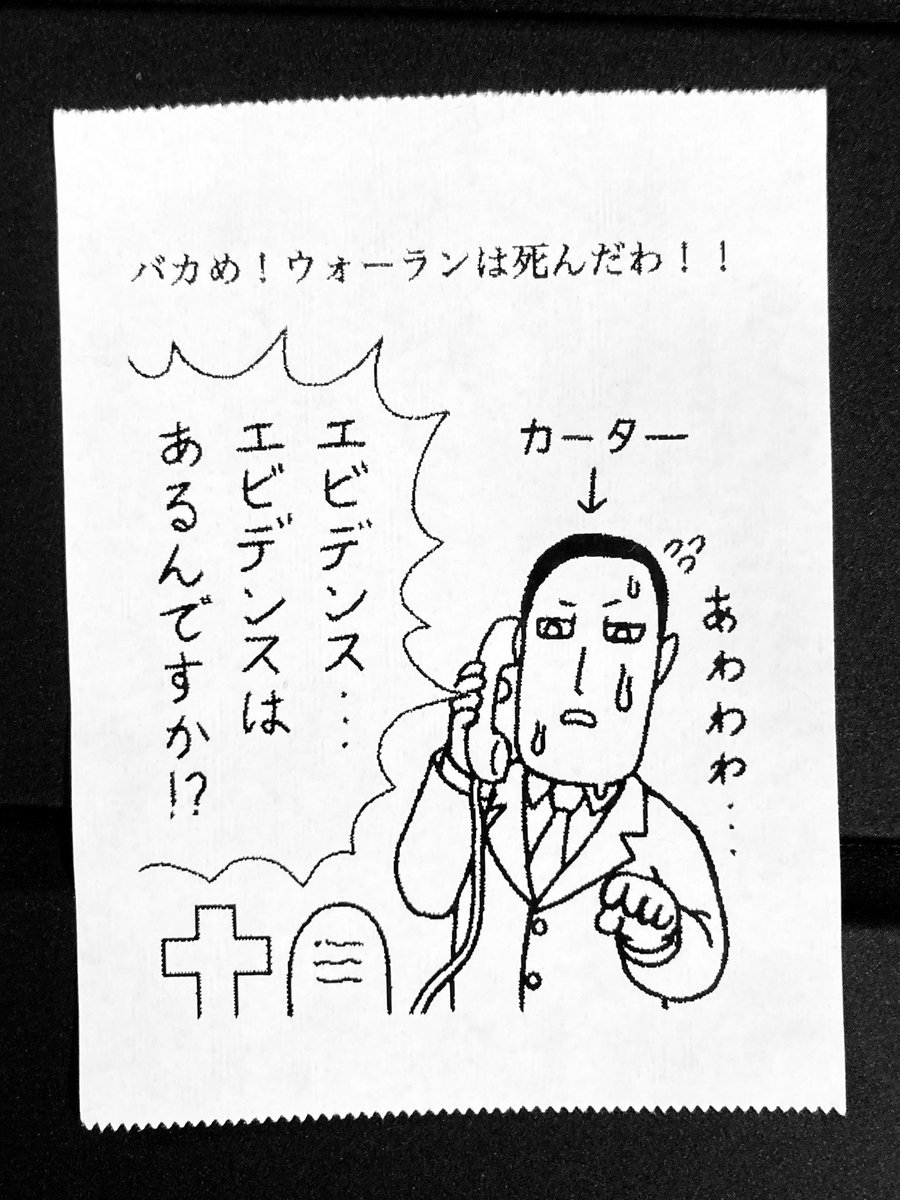 バカめ！ウォーランは死んだわ！！
カーター
↓
あわわわ・・・
エビデンス・・
エビデンスは
あるんですか!?